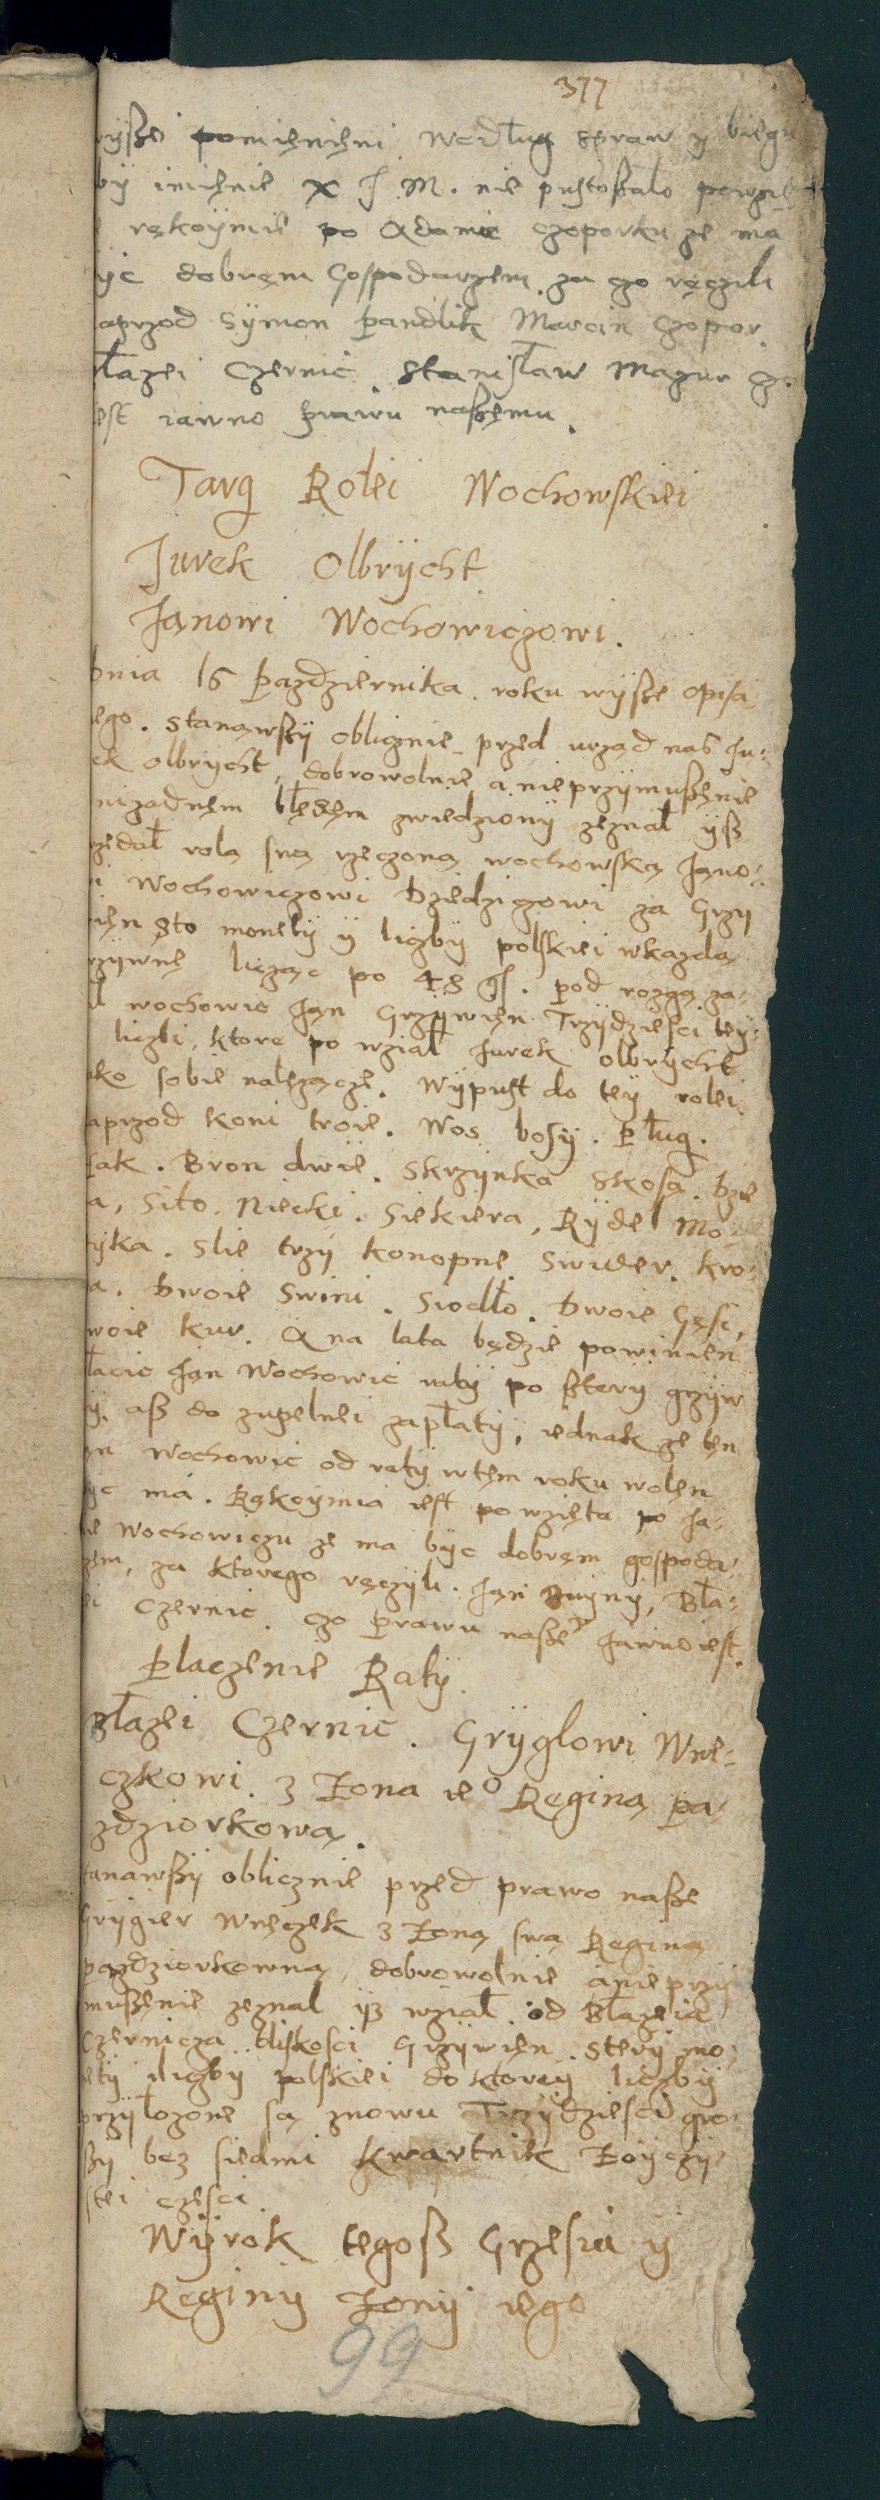 377
yßei pomienieni według spraw y biegu
by imienie X J M. nie pustoßało powzie
rękoymie po Adamie Czoporku ze ma
yc dobręm Gospodarzem za czo ręczili
aprzod Symon Pandlik Marcin Czopor
łazei Czernic Stanisław Mazur cz
est iawno prawu naßemu.
Targ Rolei Wochowskiei
Jurek Olbrycht
Janowi Wochowiczowi.
Dnia 16 Pazdziernika roku wyße opisa
ego. Stanąwßy oblicznie przed urząd nas Ju-
ek Olbrycht, dobrowolnie a nieprzymußęnie
nizadnem błędem zwiedziony zeznał yß
rzedał rolą swą rzeczoną wochowską Jano-
i Wochowiczowi Dziedziczowi za Grzy
ien sto monety y liczby polskiei wkazdą
rzywnę licząc po 48 gs. Pod rozgą za-
ł wochowic Jan Grzywien Trzydziesci tey
liczbi, ktore po wział Jurek Olbrycht
ako sobie nalezącze. Wypust do tey rolei
aprzod koni troie. Wos bosy. Pług.
ak. Bron dwie. Skrzynka Skosa. Dzie
a, Sito. Niecki. Siekiera, Rydel Mo-
tyka. Slie trzy konopne. Swider. Kro-
a. Dwoie Swini. Siodło. Dwoie Gęsi,
woie kur. A na lata będzie powinien
łacic Jan Wochowic raty po ßtery grzyw
y. aß do zupelnei zapłaty, iednak ze ten
an Wochowic od raty wtem roku wolen
yc má. Rękoymia iest powzięta po Ja-
ie Wochowiczu ze ma byc dobręm gospoda-
zem, za ktorego ręczyli. Jan Buyny, Bła-
ei Czernic. czo Prawu naße° Jawno iest.
Płaczenie Raty.
Błazei Czernic. Gryglowi Wnę-
czkowi. z Zona ie° Reginą Pa-
zdziorkową.
tanawßy oblicznie przed prawo naße
Grygier Wnęczek z Zoną swą Reginą
pazdziorkowną, dobrowolnie a nieprzy
mußęnie zeznał yß wział od Błazeia
Czernicza bliskosci Grzywien stery mo-
ety liczby polskiei do ktorey liczby
przyłozone są znowu Trzydziesci gro-
ßy bez siedmi kwartnik Zoyczy-
stei częsci
Wyrok tegoß Grzesia y
Reginy Zony iego
99